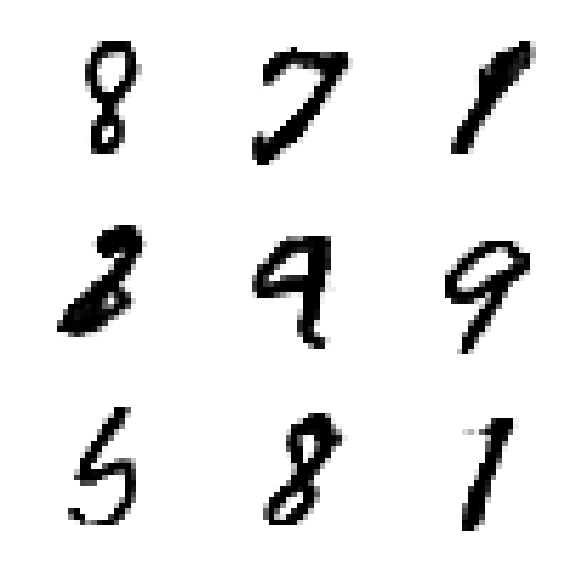 8 7 1
9 9
5 8 1